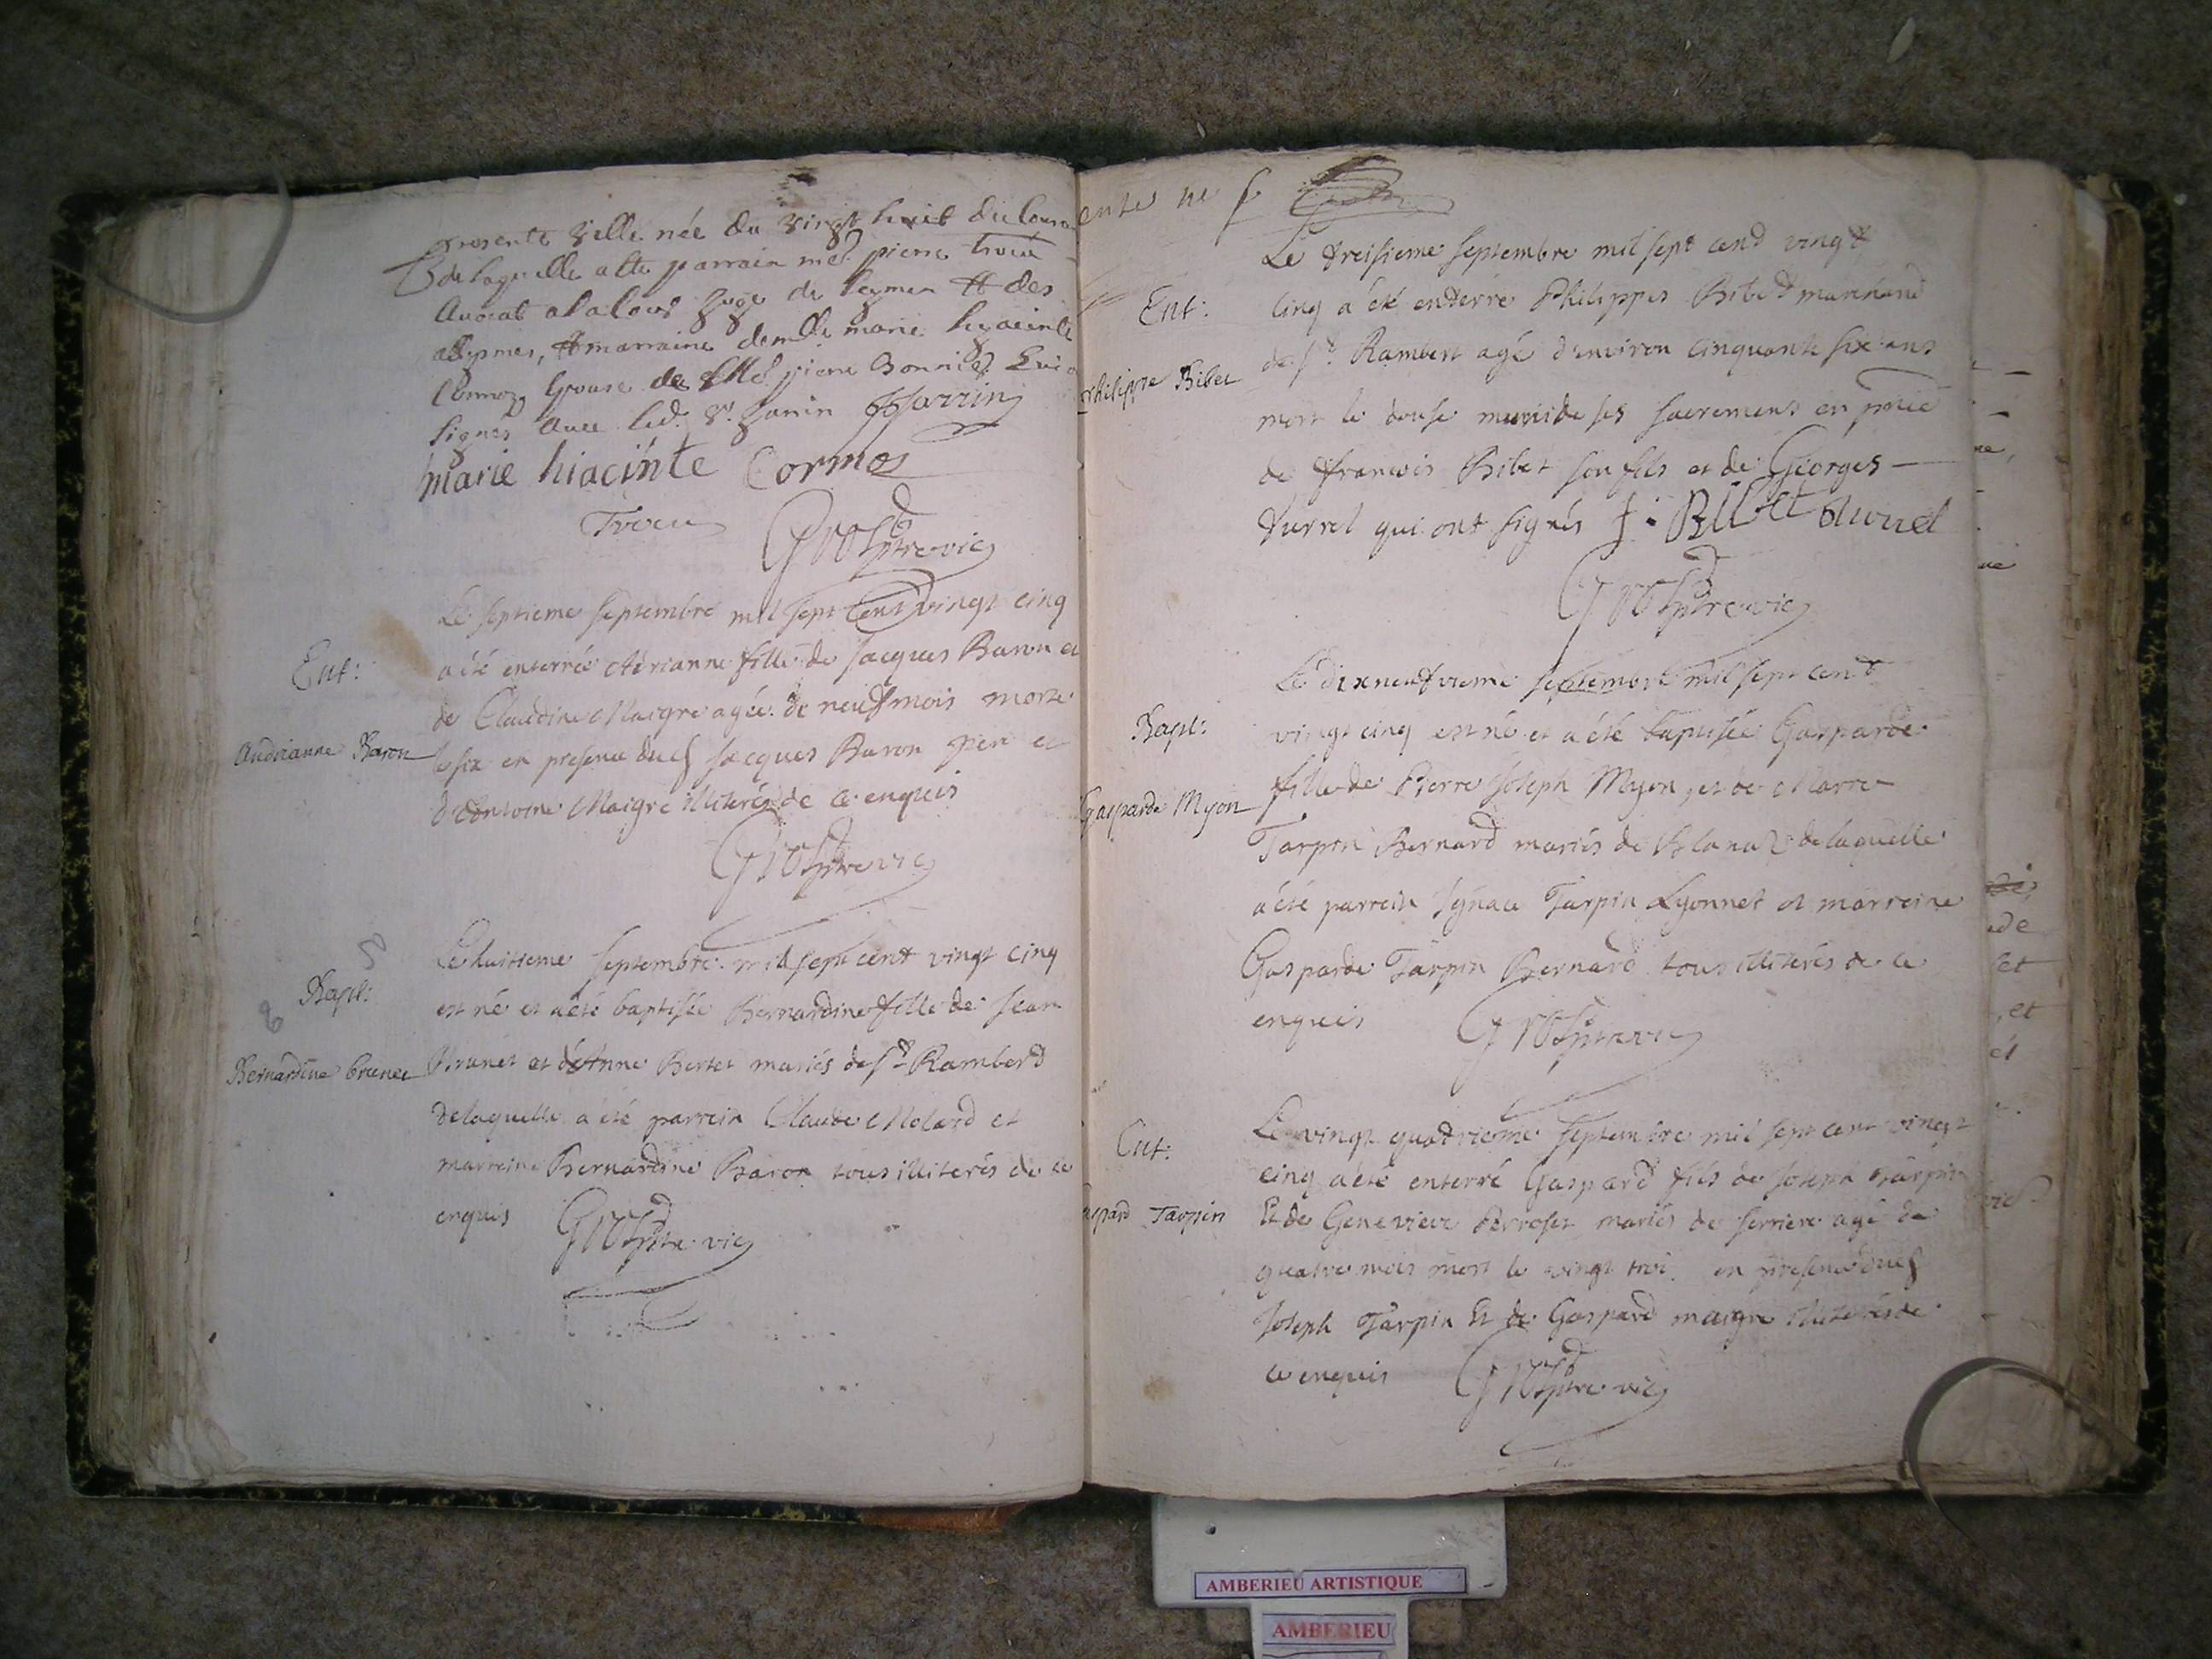 presente ville née du vingt huit du
de laquelle a été parrain me^d pierre trocu
Avocat a la Cour Juge de leymen et des
allymes, et marraine demlle marie hyacinte
Cormoz Epouse de Me^d pierre Bonnied
signés avec led. Sr. Janin JJannin
marie hiacinte Cormos
Trocu Gros ptre vic
Le septieme septembre mil sept cent vingt cinq
Ent: a été enterrée Adrianne fille de Jacques Baron et
de Claudine Maigre agée de neuf mois morte
Audrianne Baron le six en presence dud Jacques Baron pere et
d'Antoine Maigre illiterés de ce enquis
Gros ptre vic
5
Le huitieme septembre mil sept cent vingt cinq
Bapt:
8
est né et a été baptisée Bernardine fille de Jean
Bernardine brunet Brunet et d'Anne Bertet mariés de st Ramberd
de laquelle a été parrein Claude Molard et
marreine Bernardine Baron tous illiterés de ce
enquis Gros ptre vic
ente ne f
Le treisieme septembre mil sept cend vingt
Ent: cinq a été enterré Philippes Bibet marchand
philippe Bibet de st Rambert agé d'environ cinquante six ans
mort le douse muni de ses sacremens en
de francois Bibet son fils et de Georges
durrel qui ont signés f: Bibet durrel
Gros ptre vic
Le dixneufvieme septembre mil sept cend
Bapt: vingt cinq est né et a été baptisée Gasparde
Gasparde Myon fille de Pierre Joseph Myon, et de Marre
Tarpin Bernard mariés de Blanaz de laquelle
a été parrein Ignace Tarpin Lyonnet et marreine
Gasparde Tarpin Bernard tous illiterés de ce
enquis Gros ptre vic
Le vingt quatrieme septembre mil sept cent vingt
Ent: cinq a été enterré Gaspard fils de Joseph Tarpin
aspard Tarpin Et de Genevieve Perroset mariés de serriere agé de
quatre mois mort le vingt troi en presence dud
Joseph Tarpin Et de Gaspard maigre illiterés de
ce enquis Gros ptre vic
AMBERIEU ARTISTIQUE
AMBERIEU